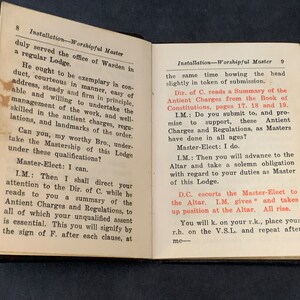 8 Installation—Worshipful Master
duly served the office of Warden in
a regular Lodge.
He ought to be exemplary in con-
duct, courteous in manner, easy of
address, steady and firm in principle,
able and willing to undertake the
management of the work, and well-
skilled in the antient charges, regu-
lations, and landmarks of the order.
Can you, my worthy Bro., under-
take the Mastership of this Lodge
under these qualifications?
Master-Elect: I can.
I.M.: Then I shall direct your
attention to the Dir. of C. while he
reads to you a summary of the
Antient Charges and Regulations, to
all of which your unqualified assent
is essential. This you will signify by
the sign of F. after each clause, at
Installation—Worshipful Master 9
the same time bowing the head
slightly in token of submission.
Dir. of C. reads a Summary of the
Antient Charges from the Book of
Constitutions, pages 17, 18 and 19.
I.M.: Do you submit to, and pro-
mise to support, these Antient
Charges and Regulations, as Masters
have done in all ages?
Master-Elect: I do.
I.M.: Then you will advance to the
Altar and take a solemn obligation
with regard to your duties as Master
of this Lodge.
D.C. escorts the Master-Elect to
the Altar. I.M. gives * and takes
up position at the Altar. All rise.
You will k. on your r.k., place your
r.h. on the V.S.L. and repeat after
me—